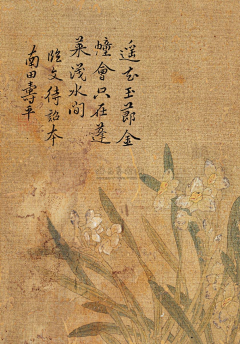 遥知玉節金
幢會只在蓬
萊淺水間
臨文待詔本
南田壽平